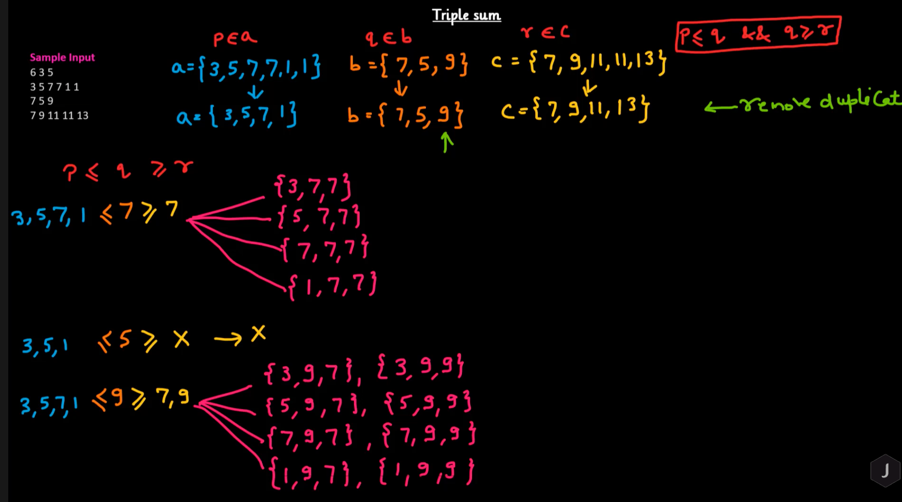 Triple sum
p∈a q∈b r∈c p≤q && q≥r
Sample Input
6 3 5
3 5 7 7 1 1
7 5 9
7 9 11 11 13
a={3,5,7,7,1,1} b={7,5,9} c={7,9,11,11,13}
↓ ↓ ↓
a={3,5,7,1} b={7,5,9} c={7,9,11,13} ← remove duplicat
↑
P ≤ q ≥ r
3,5,7,1 ≤ 7 ≥ 7
{3,7,7}
{5,7,7}
{7,7,7}
{1,7,7}
3,5,1 ≤ 5 ≥ x → x
3,5,7,1 ≤ 9 ≥ 7,9
{3,9,7}, {3,9,9}
{5,9,7}, {5,9,9}
{7,9,7}, {7,9,9}
{1,9,7}, {1,9,9}
J